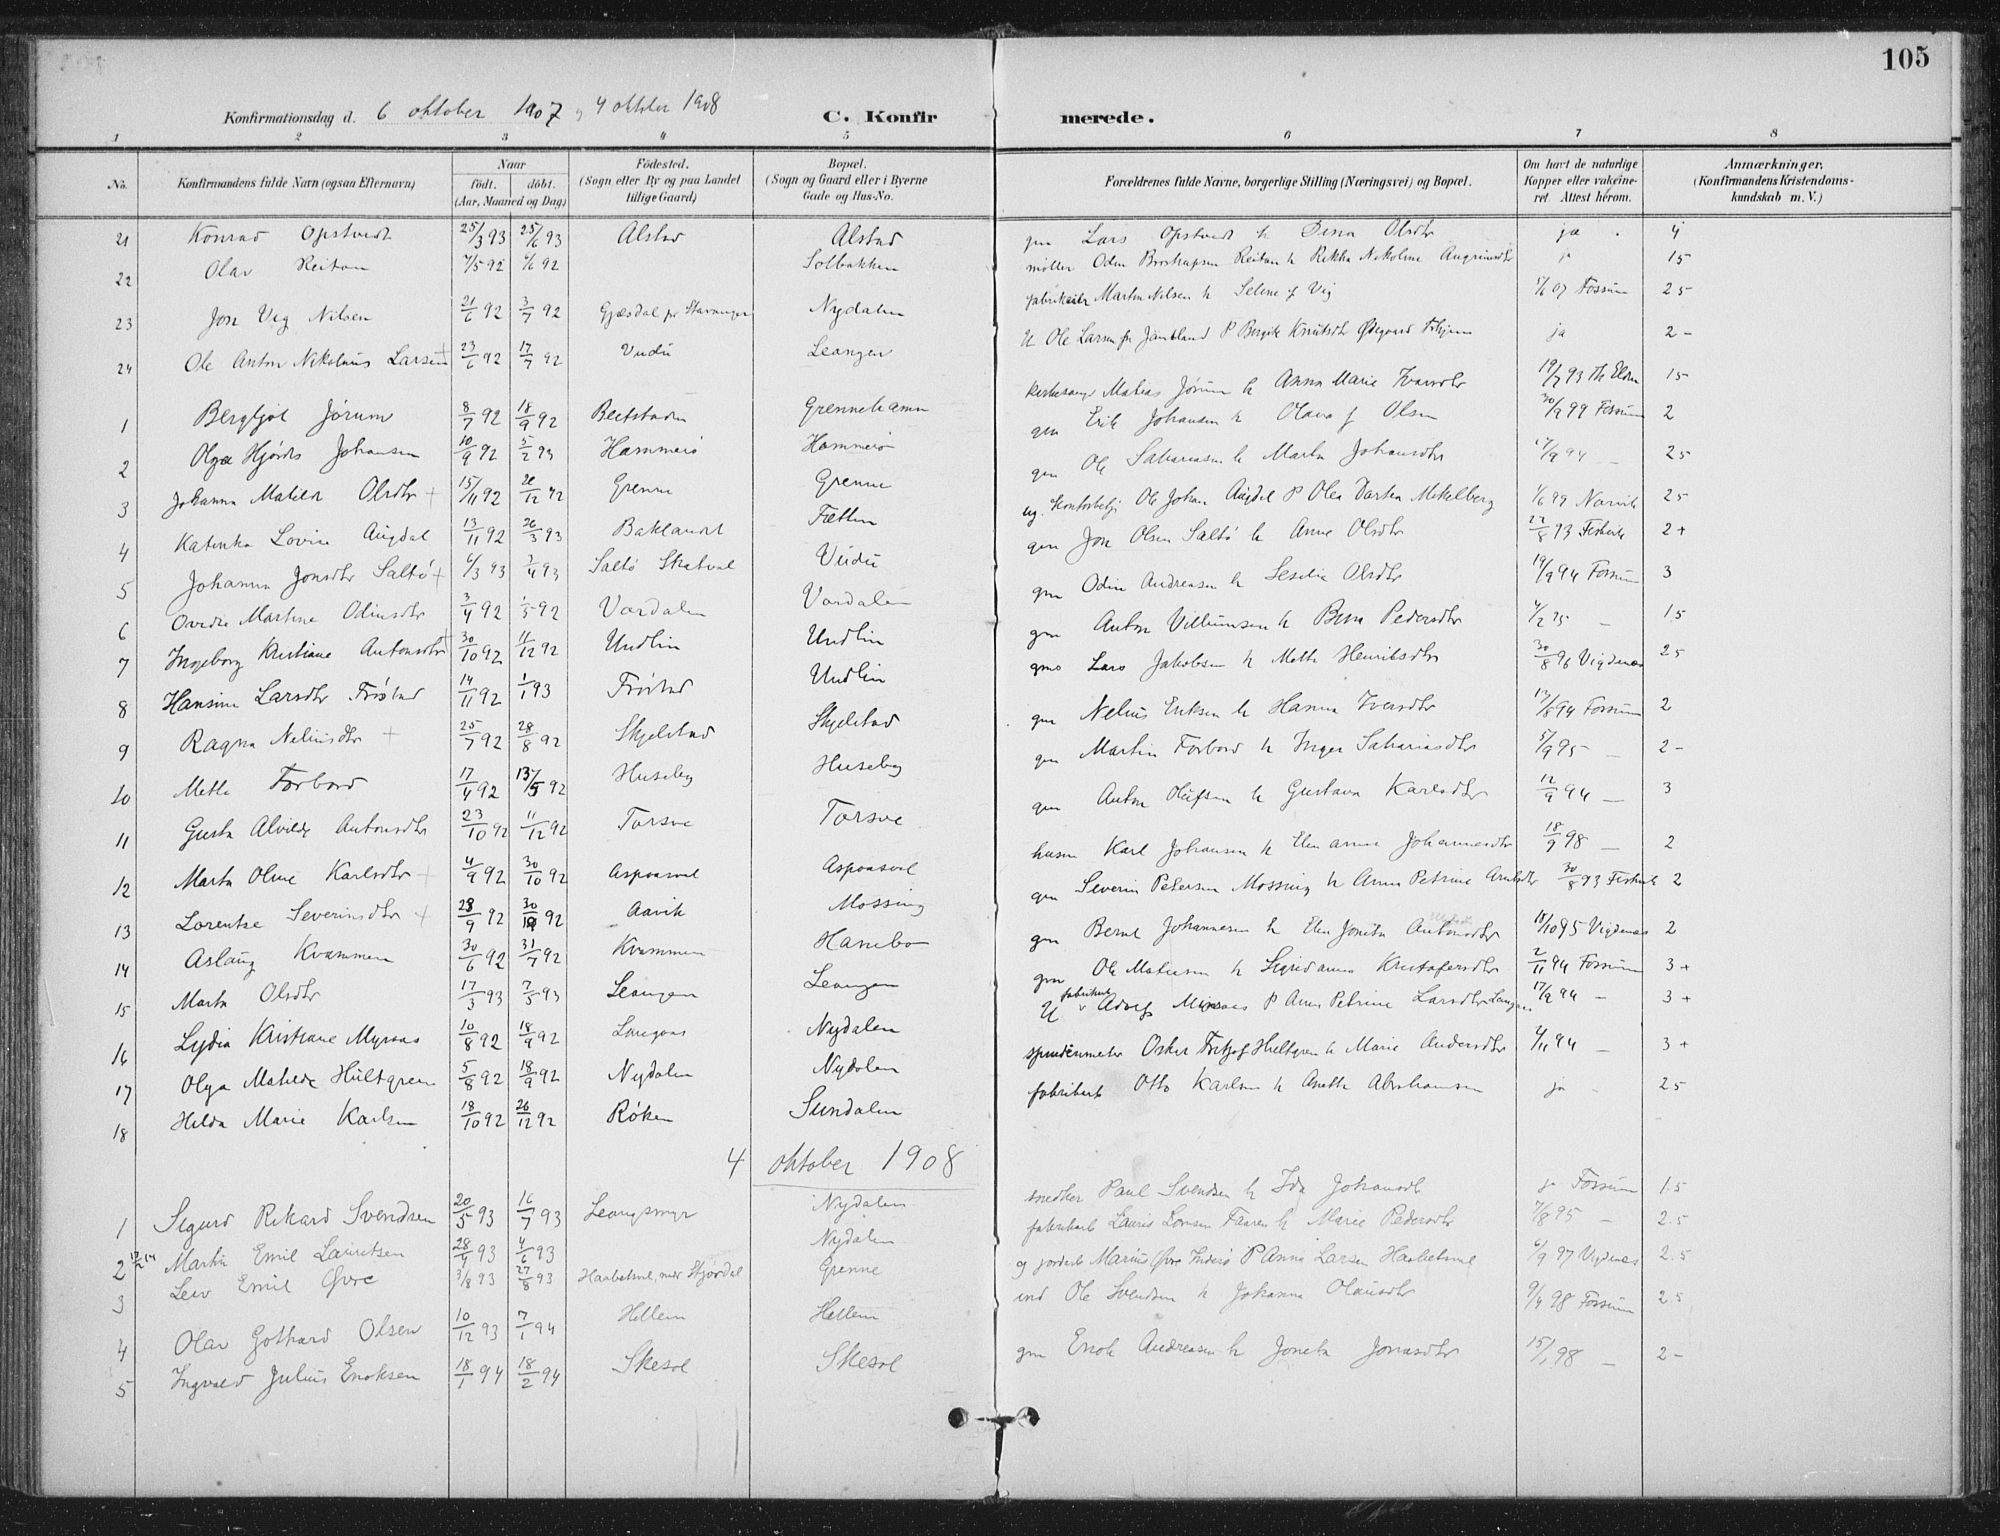 105
Konfirmationsdag d. 6 oktober 1907 og 4 oktober 1908 C. Konfirmerede.
1 2 3 4 5 6 7 8
No. Konfirmandens fulde Navn (ogsaa Efternavn) Naar födt. döbt. (Aar, Maaned og Dag) Födested. (Sogn eller By og paa Landet tillige Gaard) Bopæl. (Sogn og Gaard eller i Byerne Gade og Hus-No. Forældrenes fulde Navne, borgerlige Stilling (Næringsvei) og Bopæl. Om havt de naturlige Kopper eller vakcineret. Attest herom. Anmærkninger. (Konfirmandens Kristendomskundskab m. V.)
21 Konrad Opstvedt 25/3 93 25/6 93 Alstad Alstad gm Lars Opstvedt h Dina Olsdtr ja 4
22 Olav Reitan 7/5 92 6/6 92 Solbakken møller Oden Reitan h Rikka Nikoline 15
23 Jon Vig Nilsen 21/6 92 3/7 92 Gjæsdal pr Stavanger Nydalen Martin Nilsen h Selene f Vig 07 Fossum 25
24 Ole Anton Nikolaus Larsen + 23/6 92 17/7 92 Vudu Leangen U Ole Larsen fr Jämtland P Bergite Knutsdtr Ødegaard ja 2-
1 Bergljot Jørum 8/7 92 18/9 92 Beitstaden Grennehamn kirkesanger Matias Jørum h Anna Marie Ivarsdtr 19/7 93 15
2 Olga Hjørdis Johansen 10/9 92 5/2 93 Hammerø Hammerø gm Erik Johansen h Olava f Olsen 30/9 99 Fossum 2
3 Johanna Matilde Olsdtr + 15/11 92 26/12 92 Grenne Grenne gm Ole Sakariasen h Marta Johansdtr 17/9 94 — 25
4 Katinka Lovise Augdal 13/11 92 26/3 93 Baklandet Fætten ug. kontorbetj Ole Johan Augdal P Olea Dartea Mekelberg 6 99 Narvik 25
5 Johanna Jonsdtr Saltø + 6/3 93 3/4 93 Saltø Skatval Vudu gm Jon Olsen Saltø h Anne Olsdtr 22/8 93 2+
6 Ovedie Martine Odinsdtr 3/4 92 1/5 92 Vordalen Vordalen gm Odin Andreasen h Sesilia Olsdtr 19/9 94 Fossum 3
7 Ingeborg Kristiane Antonsdtr + 30/10 92 11/12 92 Undlin Undlin gm Anton Villumsen h Bina Pedersdtr 4/2 95 — 15
8 Hansine Larsdtr Frøstad 14/11 92 1/1 93 Frøstad Undlin gm Lars Jakobsen h Mette Henriksdtr 30/8 96 Vigdenes 25
9 Ragna Neliusdtr + 25/7 92 28/8 92 Skjelstad Skjelstad gm Nelius Eriksen h Hanna Iversdtr 13/8 94 Fossum 2
10 Mette Forbord 17/4 92 13/5 92 Huseby Huseby gm Martin Forbord h Inger Sakariasdtr 5/9 95 — 2-
11 Gusta Alvilde Antonsdtr 23/10 92 11/12 92 Torsve Torsve gm Anton Olufsen h Gustava Karlsdtr 12/9 94 — 3
12 Marta Oline Karlsdtr + 4/9 92 30/10 92 Aspaasvol Aspaasvol husm Karl Johansen h Elen Anna Johannesdtr 18/9 98 — 2
13 Lorentse Severinsdtr + 28/9 92 30/10 92 Aavik Mossing gm Severin Petersen Mossing h Anna Petrine 30/8 93 2
14 Aslaug Kvammen 30/6 92 31/7 92 Kvammen Hambo gm Bernt Johannesen h Elen Jonetta Antonsdtr 18/10 95 Vigdenes 2
15 Marta Olsdtr 17/3 93 7/5 93 Leangen Leangen gm Ole Matiasen h Sigrid Anna Kristofersdtr 2/11 94 Fossum 3+
16 Lydia Kristiane Myraas 10/8 92 18/9 92 Langaas Nydalen U fabrikarb Adolf Myraas P Anna Petrine Larsdtr Langaas 17/9 94 — 3+
17 Olga Matilde Hultgren 5/8 92 18/9 92 Nydalen Nydalen spindemester Oskar Fritjof Hultgren h Marie Andersdtr 4/11 94 — 3+
18 Hilda Marie Karlsen 18/10 92 26/12 92 Røken Sundalen fabrikarb Otto Karlsen h Anette Abrahamsen ja 25
4 oktober 1908
1 Sigurd Rikard Svendsen 20/5 93 16/7 93 Leangsmyr Nydalen snedker Paul Svendsen h Ida Johansdtr ja Fossum 1.5
2 Martin Emil Lauritsen 28/4 93 4/6 93 Nydalen fabrikarb Lauris h Marie Pedersdtr 7/8 95 — 2.5
3 Leiv Emil Øvre 3/8 93 27/8 93 Haabetvol, nær Stjørdal Grenne Marius Øvre Inderø P Anna Larsen Haabetvol 6/9 97 Vigdenes 2.5
4 Olav Gothard Olsen 10/12 93 7/1 94 Hellem Hallem ind Ole Svendsen h Johanna Olausdtr 9/4 98 Fossum 2.5
5 Ingvald Julius Enoksen 18/1 94 18/2 94 Skesol Skesol gm Enok Andreasen h Joneta Jonasdtr 15/1 98 — 2-